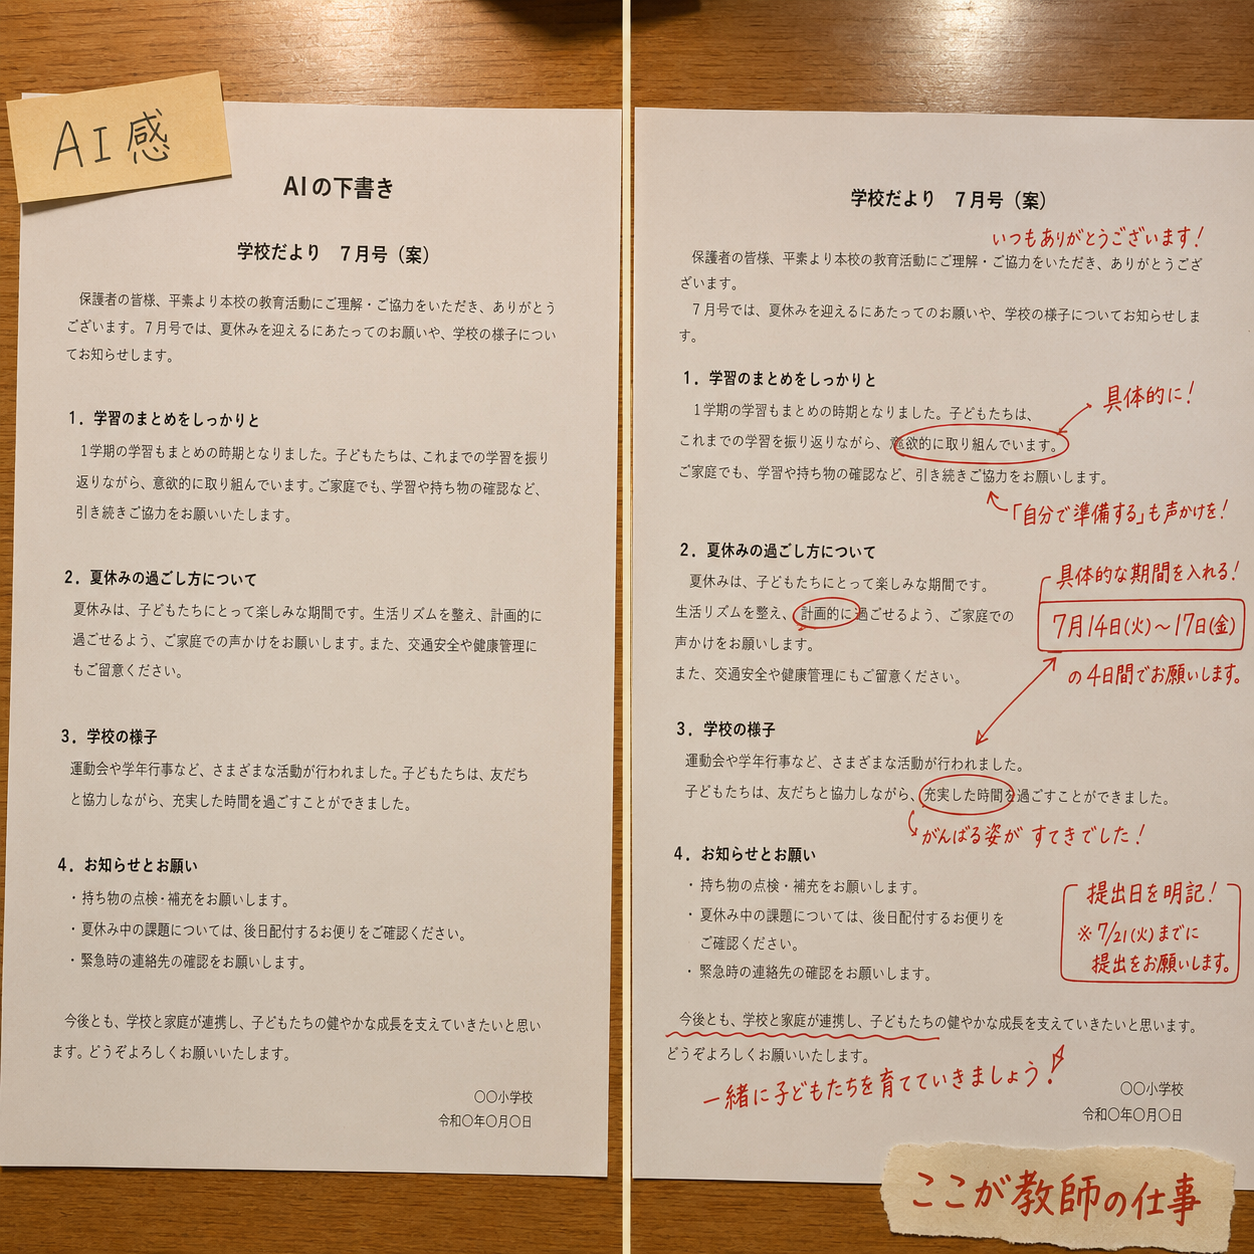 AI感
AIの下書き
学校だより　7月号（案）
保護者の皆様、平素より本校の教育活動にご理解・ご協力をいただき、ありがとう
ございます。7月号では、夏休みを迎えるにあたってのお願いや、学校の様子につい
てお知らせします。
1．学習のまとめをしっかりと
1学期の学習もまとめの時期となりました。子どもたちは、これまでの学習を振り
返りながら、意欲的に取り組んでいます。ご家庭でも、学習や持ち物の確認など、
引き続きご協力をお願いいたします。
2．夏休みの過ごし方について
夏休みは、子どもたちにとって楽しみな期間です。生活リズムを整え、計画的に
過ごせるよう、ご家庭での声かけをお願いします。また、交通安全や健康管理に
もご留意ください。
3．学校の様子
運動会や学年行事など、さまざまな活動が行われました。子どもたちは、友だち
と協力しながら、充実した時間を過ごすことができました。
4．お知らせとお願い
・持ち物の点検・補充をお願いします。
・夏休み中の課題については、後日配付するお便りをご確認ください。
・緊急時の連絡先の確認をお願いします。
今後とも、学校と家庭が連携し、子どもたちの健やかな成長を支えていきたいと思い
ます。どうぞよろしくお願いいたします。
〇〇小学校
令和〇年〇月〇日
学校だより　7月号（案）
いつもありがとうございます！
保護者の皆様、平素より本校の教育活動にご理解・ご協力をいただき、ありがとうござ
ざいます。
7月号では、夏休みを迎えるにあたってのお願いや、学校の様子についてお知らせしま
す。
1．学習のまとめをしっかりと
具体的に！
1学期の学習もまとめの時期となりました。子どもたちは、
これまでの学習を振り返りながら、意欲的に取り組んでいます。
ご家庭でも、学習や持ち物の確認など、引き続きご協力をお願いします。
「自分で準備する」も声かけを！
2．夏休みの過ごし方について
具体的な期間を入れる！
夏休みは、子どもたちにとって楽しみな期間です。
生活リズムを整え、計画的に過ごせるよう、ご家庭での
7月14日(火)～17日(金)
声かけをお願いします。
また、交通安全や健康管理にもご留意ください。
の4日間でお願いします。
3．学校の様子
運動会や学年行事など、さまざまな活動が行われました。
子どもたちは、友だちと協力しながら、充実した時間を過ごすことができました。
がんばる姿が すてきでした！
4．お知らせとお願い
・持ち物の点検・補充をお願いします。
・夏休み中の課題については、後日配付するお便りを
ご確認ください。
・緊急時の連絡先の確認をお願いします。
提出日を明記！
※7/21(火)までに
提出をお願いします。
今後とも、学校と家庭が連携し、子どもたちの健やかな成長を支えていきたいと思います。
どうぞよろしくお願いいたします。
一緒に子どもたちを育てていきましょう！
〇〇小学校
令和〇年〇月〇日
ここが教師の仕事